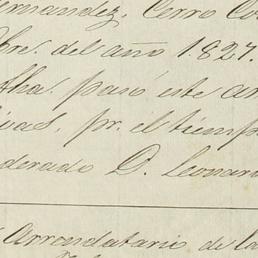 Hernandez, Cerro Co
bre. del año 1827.
tha. pasó este ar
pr. el tiemp
derado D. Leonar
Arrendatario de la